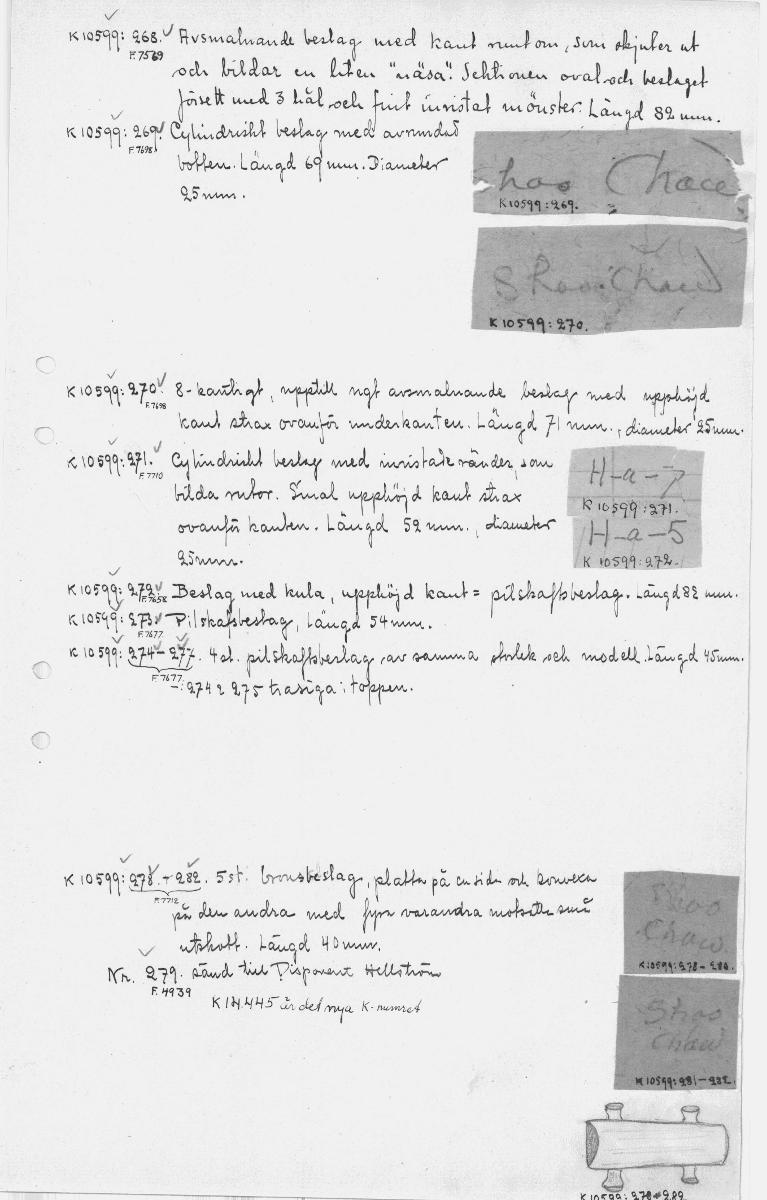 K10599: 268. Avsmalnande beslag med kant runt om, som skjuter ut
F.7569
och bildar en liten "näsa". Sektionen oval och beslaget
försett med 3 hål och fint inristat mönster. Längd 82 mm.
K10599: 269. Cylindriskt beslag med avrundad
F.7698
botten. Längd 69 mm. Diameter
25 mm.
hao Chaew
K10599:269.
Shao: Chaew
K10599:270.
K10599: 270. 8-kantigt, upptill ngt avsmalnande beslag med upphöjd
F.7698
kant strax ovanför underkanten. Längd 71 mm., diameter 25mm.
K10599: 271. Cylindriskt beslag med inristade ränder, som
F.7710
bilda rutor. Smal upphöjd kant strax
ovanför kanten. Längd 52 mm., diameter
25mm.
H-a-7
K10599:271.
H-a-5
K10599:272.
K10599: 272. Beslag med kula, upphöjd kant = pilskaftsbeslag. Längd 82 mm.
F.7658
K10599: 273. Pilskaftsbeslag, Längd 54 mm.
F.7677.
K10599: 274-277. 4 st. pilskaftsbeslag av samma storlek och modell. Längd 45mm.
F.7677.
-:274 & 275 trasiga i toppen.
K10599: 278.-282. 5 st. bronsbeslag, platta på en sida och konvexa
F.7712
på den andra med fyra varandra motsatta små
utskott. Längd 40 mm.
Nr. 279. sänd till Disponent Hellström
F.4939
K 14.445 är det nya K-numret
Shoo
Chaew
K10599:278-280.
Shoo
Chaew
K10599:281-282.
K10599:278-282